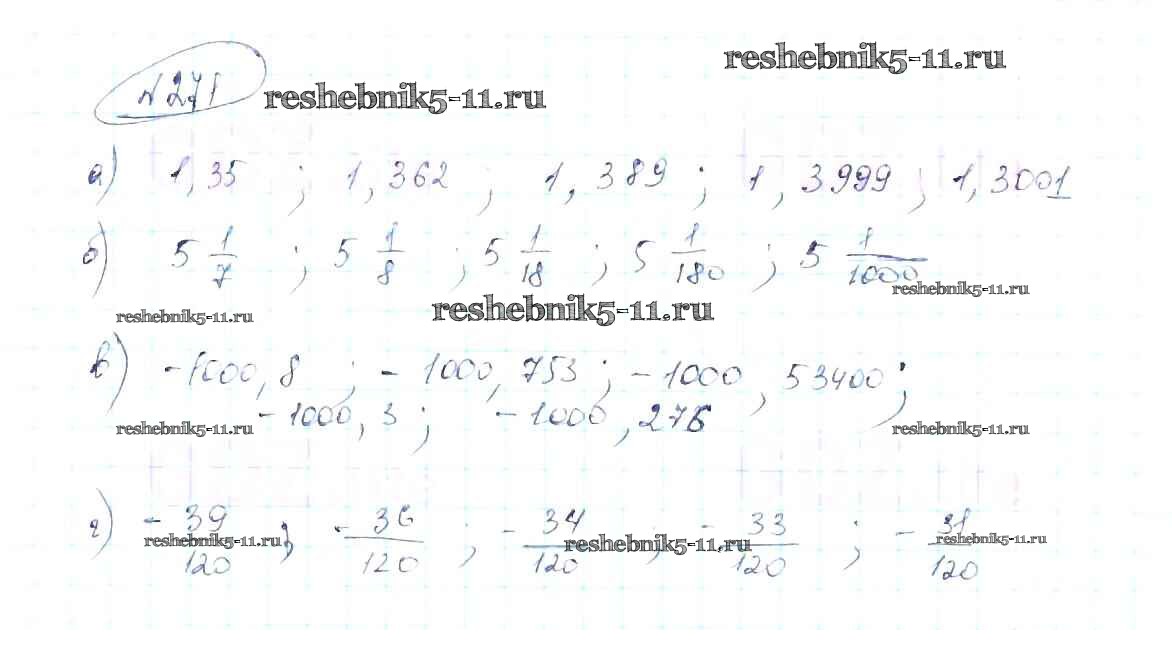 reshebnik5-11.ru
№271 reshebnik5-11.ru
а) 1,35 ; 1,362 ; 1,389 ; 1,3999 ; 1,3001
б) 5 1/7 ; 5 1/8 ; 5 1/18 ; 5 1/180 ; 5 1/1000
reshebnik5-11.ru
reshebnik5-11.ru reshebnik5-11.ru
в) -1000,8 ; -1000,753 ; -1000,53400 ;
-1000,3 ; -1000,276
reshebnik5-11.ru reshebnik5-11.ru
г) -39/120 ; -36/120 ; -34/120 ; -33/120 ; -31/120
reshebnik5-11.ru reshebnik5-11.ru reshebnik5-11.ru